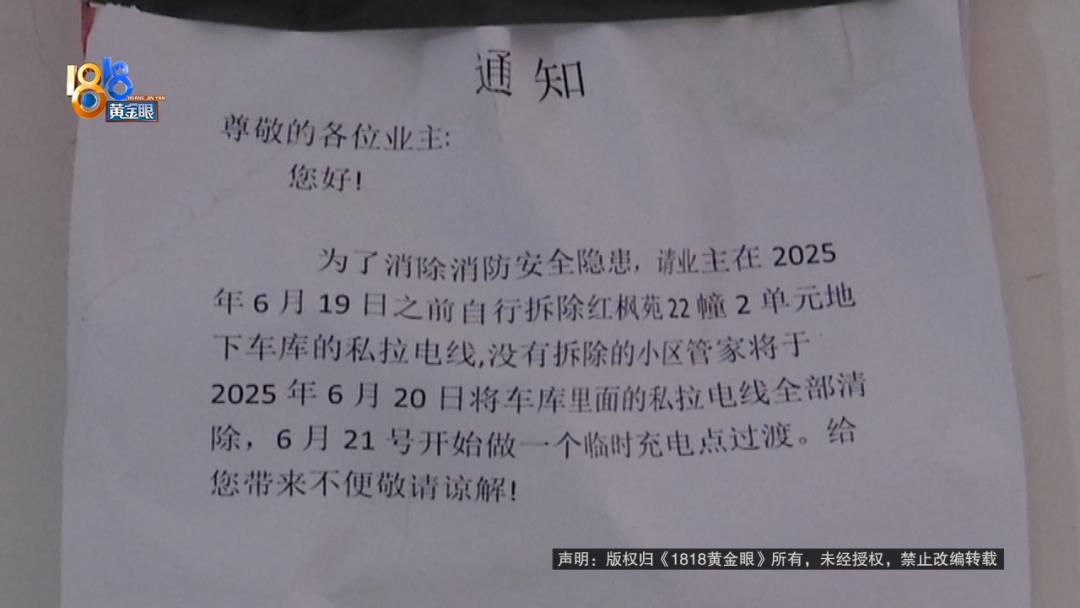 1818
HUANG JIN YAN
黄金眼
通知
尊敬的各位业主:
您好!
为了消除消防安全隐患, 请业主在 2025
年 6 月 19 日之前自行拆除红枫苑 22 幢 2 单元地
下车库的私拉电线,没有拆除的小区管家将于
2025 年 6 月 20 日将车库里面的私拉电线全部清
除，6 月 21 号开始做一个临时充电点过渡。给
您带来不便敬请谅解!
声明：版权归《1818黄金眼》所有，未经授权，禁止改编转载